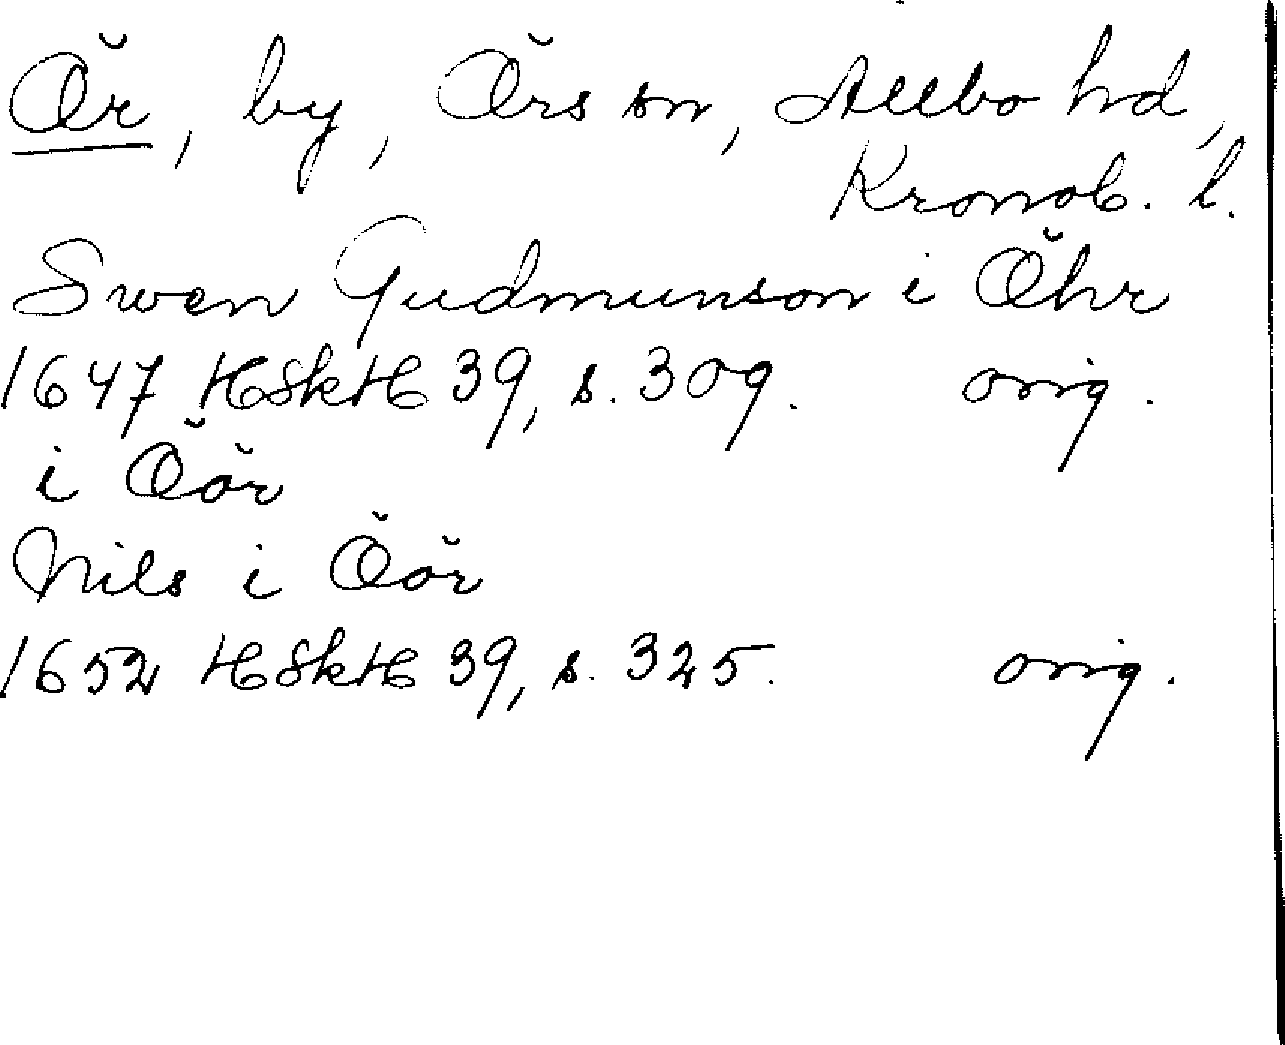 Ör, by, Örs sn, Allbo hd,
Kronob. l.
Swen Gudmunson i Öhr
1647 HSkH 39, s. 309. orig.
i Öör
Nils i Öör
1652 HSkH 39, s. 325. orig.